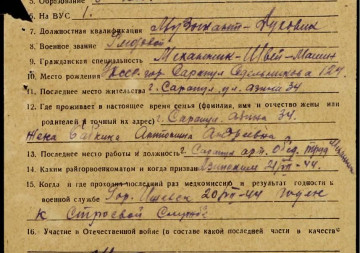 5. Образование
6. На ВУС 1.
7. Должностная квалификация Музыкант-Духовик
8. Военное звание Рядовой
9. Гражданская специальность Механик-Швей-Машин
10. Место рождения гор. Сарапул
11. Последнее место жительства г. Сарапул, ул. Азина 34
12. Где проживает в настоящее время семья (фамилия, имя и отчество жены или
родителей и точный адрес) г. Сарапул Азина 34.
Жена Антонина Андреевна
13. Последнее место работы и должность г. Сарапул арт.
14. Каким райгорвоенкоматом и когда призван 21/VII-44.
15. Когда и где проходил последний раз медкомиссию и результат годности к
военной службе Гор. Ижевск 20/VII-44 Годен
к Строевой Службе
16. Участие в Отечественной войне (в составе какой последней части и качестве